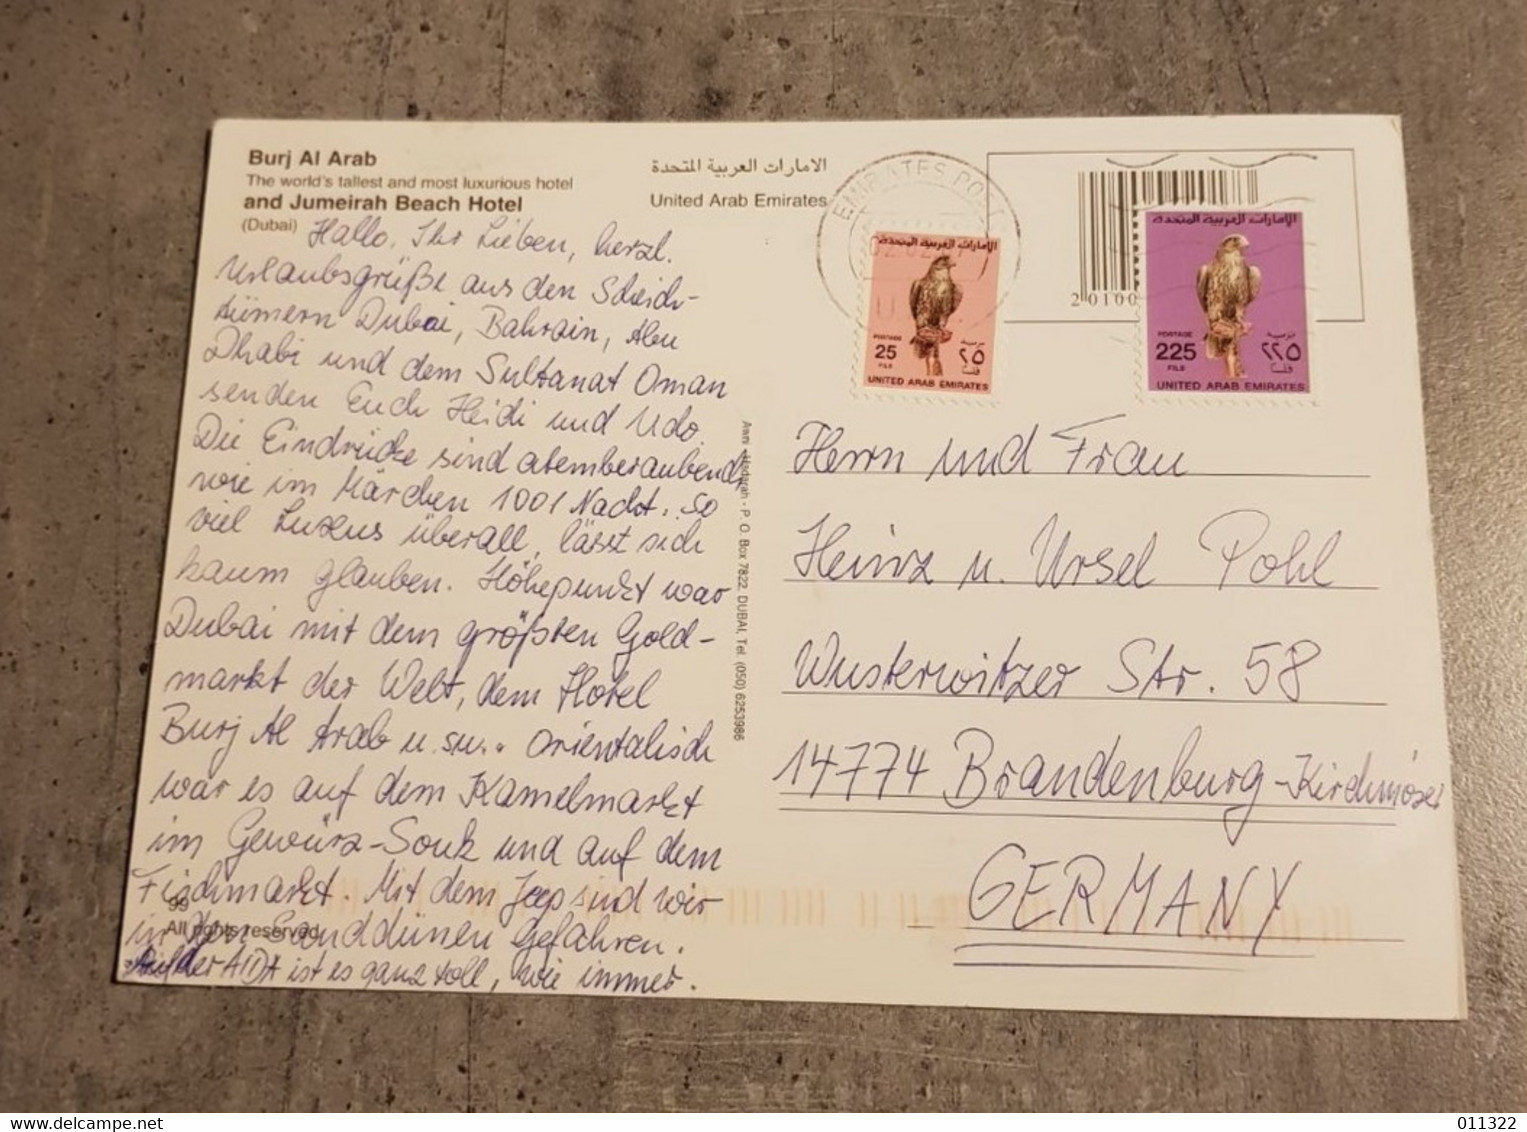 Burj Al Arab
The world's tallest and most luxurious hotel
and Jumeirah Beach Hotel
(Dubai)
الامارات العربية المتحدة
United Arab Emirates
Hallo, Ihr Lieben, herzl.
Urlaubsgrüße aus den Scheich-
tümern Dubai, Bahrain, Abu
Dhabi und dem Sultanat Oman
senden Euch Heidi und Udo.
Die Eindrücke sind atemberaubend,
wie im Märchen 1001 Nacht. So
viel Luxus überall, lässt sich
kaum glauben. Höhepunkt war
Dubai mit dem größten Gold-
markt der Welt, dem Hotel
Burj Al Arab u.sw. Orientalisch
war es auf dem Kamelmarkt
im Gewürz-Souk und auf dem
Fischmarkt. Mit dem Jeep sind wir
in den Sanddünen gefahren.
Auf der AIDA ist es ganz toll, wie immer.
99
All rights reserved
P. O. Box 7822, DUBAI, Tel. (050) 6253986
EMIRATES POST
الامارات العربية المتحدة
POSTAGE
25
FILS
٢٥
UNITED ARAB EMIRATES
20100
الامارات العربية المتحدة
POSTAGE
225
FILS
٢٢٥
UNITED ARAB EMIRATES
Herrn und Frau
Heinz u. Ursel Pohl
Wusterwitzer Str. 58
14774 Brandenburg-Kirchmöser
GERMANY
delcampe.net
011322